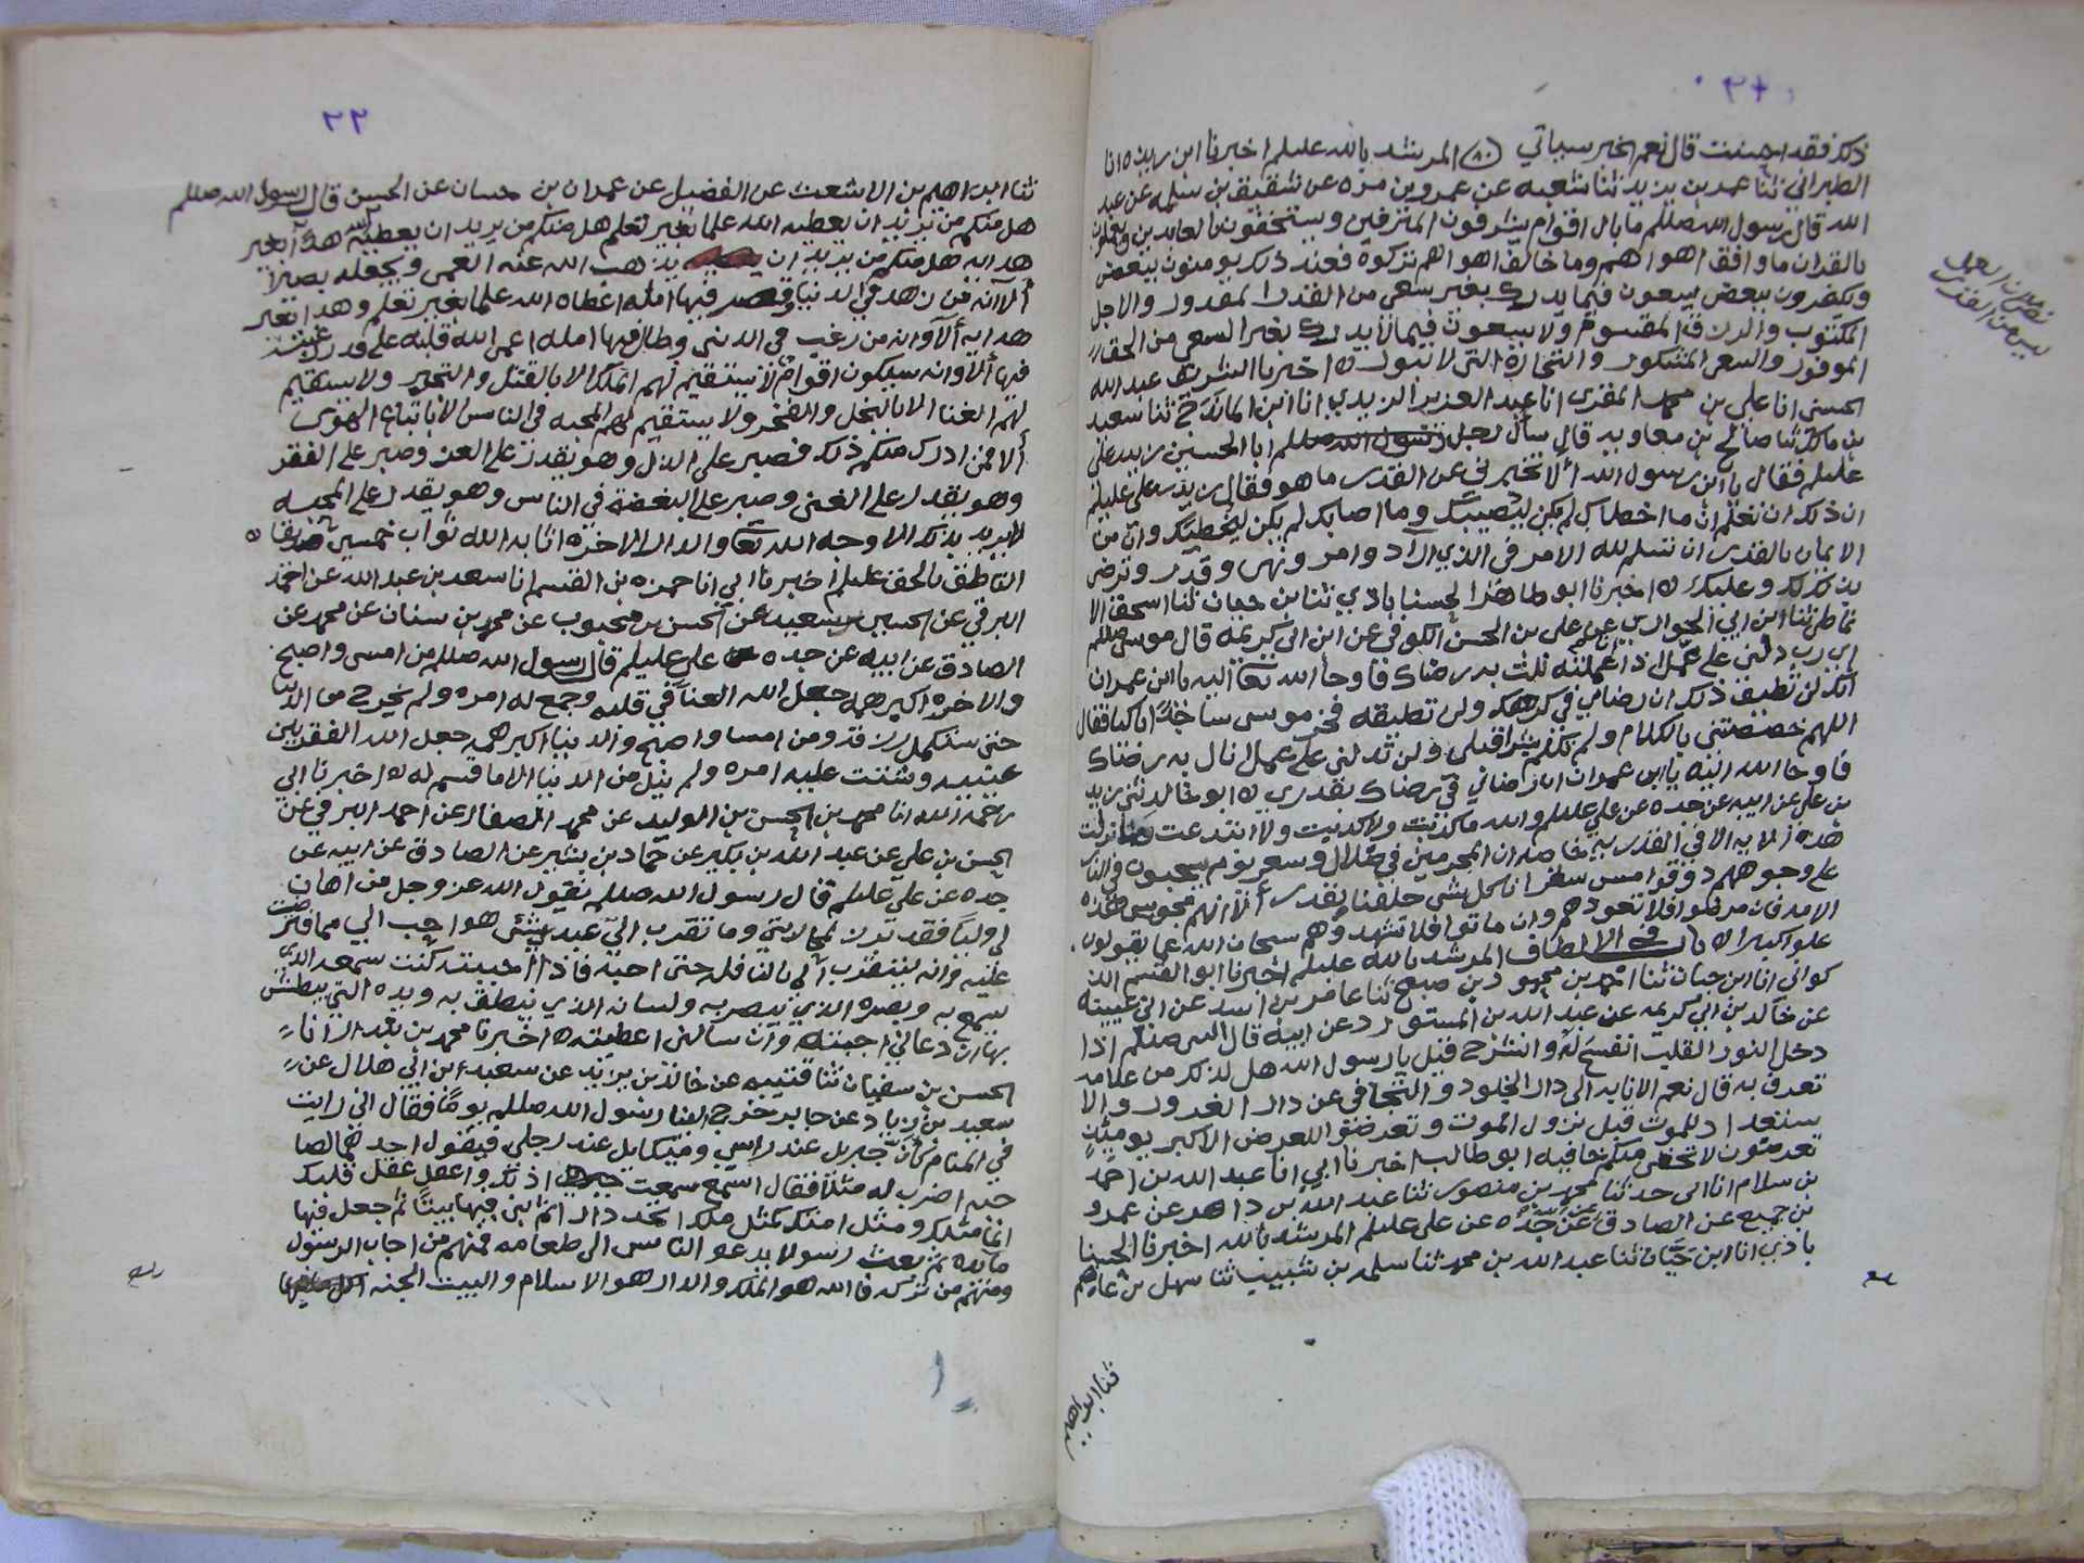 ذلك فقد احسنت قال نعم اخبر سباتي المرشد بالله عليلم اخبرنا ابن ريذه انا
الطبراني ثنا عمر بن يزيد ثنا شعبه عن عمرو بن مره عن شقيق بن سلمه عن عبد
الله قال رسول الله صللم ما بال اقوام يشرفون المترفين ويستخفون بالعابدين ويعملون
بالقران ما وافق اهواهم وما خالف اهواهم تركوه فعند ذلك يومنون ببعض
ويكفرون ببعض يسعون فيما يدرك بغير سعي من القدر المقدور والاجل
المكتوب والرزق المقسوم ولا يسعون فيما لا يدرك بغير السعي من الجزا
الموفور والسعي المشكور والتجارة التي لا تبور ه اخبرنا الشريف عبد الله
الحسني انا علي بن محمد المقري انا عبد العزيز الزيدي انا ابن ثنا سعيد
بن مالك ثنا صالح بن معاويه قال سأل رجل ابا الحسين زيد بن علي
عليلم فقال يا ابن رسول الله ألا تخبرني عن القدر ما هو فقال زيد بن علي عليلم
ان ذلك ان تعلم ان ما اخطاك لم يكن ليصيبك وما اصابك لم يكن ليخطيك وان من
الايمان بالقدر ان تسلم لله الامر في الذي اراد وامر ونهى وقدر وترضى
بذلك لك وعليك ه اخبرنا ابو طاهر الحسناباذي ثنا بن حيان ثنا اسحق الا
ثنا ابن ابي الحواري عن علي بن الحسن الكوفي عن ابن ابي كريمه قال موسى صللم
اي رب دلني على عمل اذا عملته نلت به رضاك فاوحا الله تعا اليه يا ابن عمران
انك لن تطيق ذلك ان رضاي في كرهك ولن تطيقه فخر موسى ساجدًا باكيا فقال
اللهم خصصتني بالكلام ولم تكلم بشرا قبلي ولن تدلني على عمل انال به رضاك
فاوحا الله اليه يا ابن عمران ان رضائي في رضاك بقدري ه ابو خالد ثني زيد
بن علي عن ابيه عن جده عن علي عليلم والله ما كذبت ولا كذبت ولا ابتدعت ما نزلت
هذه الايه الا في القدريه خاصه ان المجرمين في ضلال وسعر يوم يسحبون في النار
على وجوههم ذوقوا مس سقر انا كل شي خلقناه بقدر ألا انهم مجوس هذه
الامه فان مرضوا فلا تعودوهم وان ماتوا فلا تشهدوهم سبحان الله عما يقولون
علوا كبيرا ه باب في الالطاف المرشد بالله عليلم اخبرنا ابو القسم الذ
كواني انا ابن حيان ثنا بن محمود بن صبيح ثنا عامر بن اسد عن ابي عيينه
عن خالد بن ابي كريمه عن عبد الله بن المستورد عن ابيه قال النبي صللم اذا
دخل النور القلب انفسح له وانشرح قيل يا رسول الله هل لذلك من علامه
تعرف به قال نعم الانابه الى دار الخلود والتجافي عن دار الغرور والا
ستعداد للموت قبل نزول الموت وتعرضوا للعرض الاكبر يومئذ
تعرضون لا تخفى منكم خافيه ابو طالب اخبرنا ابي انا عبد الله بن احمد
بن سلام انا ابي حدثنا محمد بن منصور ثنا عبد الله بن داهر عن عمرو
بن جميع عن الصادق عن جده عن علي عليلم المرشد بالله اخبرنا الحسنا
باذي انا ابن حيان ثنا عبد الله بن محمد ثنا سلمه بن شبيب ثنا سهل بن عاصم
ثنا ابراهيم
٢٢
ثنا ابراهيم بن الاشعث عن الفضيل عن عمران بن حسان عن الحسن قال رسول الله صللم
هل منكم من يريد ان يعطيه الله علما بغير تعلم هل منكم من يريد ان يعطيه الله هدًا بغير
هدايه هل منكم من يريد ان يذهب الله عنه العمى ويجعله بصيرًا
ألا انه من زهد في الدنيا وقصر فيها امله اعطاه الله علما بغير تعلم وهدا بغير
هدايه ألا وانه من رغب في الدنيى وطال فيها امله اعمى الله قلبه على قدر رغبته
فيها ألا وانه سيكون اقوام لا يستقيم لهم الملك الا بالقتل والتجبر ولا يستقيم
لهم الغنا الا بالبخل والفخر ولا يستقيم لهم المحبه في الناس الا باتباع الهوى
ألا فمن ادرك منكم ذلك فصبر على الذل وهو يقدر على العز وصبر على الفقر
وهو يقدر على الغنى وصبر على البغضة في الناس وهو يقدر على المحبه
لا يريد بذلك الا وجه الله تعا والدار الاخره اثابه الله ثواب خمسين صديقا ه
الناطق بالحق عليلم اخبرنا ابي انا حمزه بن القسم انا سعد بن عبد الله عن احمد
البرقي عن الحسين بن سعيد عن الحسن بن محبوب عن محمد بن سنان عن محمد عن
الصادق عن ابيه عن جده علي عليلم قال رسول الله صللم من امسى واصبح
والاخره اكبر همه جعل الله الغنا في قلبه وجمع له امره ولم يخرج من الدنيا
حتى يستكمل رزقه ومن امسا واصبح والدنيا اكبر همه جعل الله الفقر بين
عينيه وشتت عليه امره ولم ينل من الدنيا الا ما قسم له ه اخبرنا ابي
رحمه الله انا محمد بن الحسن بن الوليد عن محمد الصفار عن احمد البرقي عن
الحسن بن علي عن عبد الله بن بكير عن حماد بن بشير عن الصادق عن ابيه عن
جده عن علي عليلم قال رسول الله صللم يقول الله عز وجل من اهان
لي وليًا فقد بارز لمحاربتي وما تقرب الي عبد بشي هو احب الي مما افترضت
عليه وانه ليتقرب الي بالنافله حتى احبه فاذا احببته كنت سمعه الذي
يسمع به وبصره الذي يبصر به ولسانه الذي ينطق به ويده التي يبطش
بها ان دعاني اجبته وان سالني اعطيته ه اخبرنا محمد بن بندار انا
الحسن بن سفيان ثنا قتيبه عن خالد بن يزيد عن سعيد بن ابي هلال عن
سعيد بن زياد عن جابر خرج الينا رسول الله صللم يومًا فقال اني رايت
في المنام كأن جبريل عند راسي وميكايل عند رجلي فيقول احدهما لصا
حبه اضرب له مثلا فقال اسمع سمعت اذنك واعقل عقل قلبك
انما مثلك ومثل امتك كمثل ملك اتخذ دارا ثم ابتنى فيها بيتًا ثم جعل فيها
مائده ثم بعث رسولا يدعو الناس الى طعامه فمنهم من اجاب الرسول
ومنهم من تركه فالله هو الملك والدار هو الاسلام والبيت الجنه